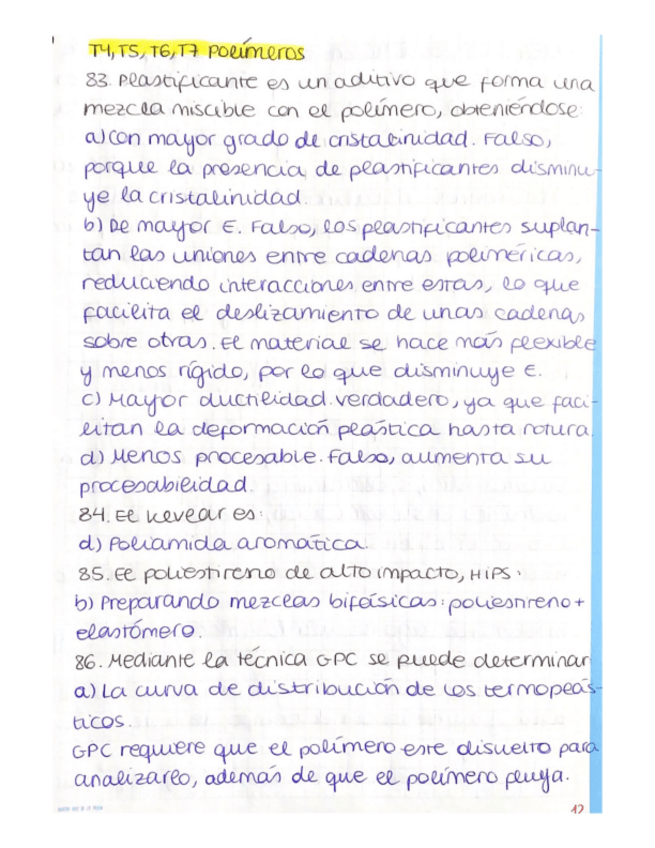 T4, T5, T6, T7 Polímeros
83. Plastificante es un aditivo que forma una
mezcla miscible con el polímero, obteniéndose:
a) Con mayor grado de cristalinidad. Falso,
porque la presencia de plastificantes disminu-
ye la cristalinidad.
b) De mayor E. Falso, los plastificantes suplan-
tan las uniones entre cadenas poliméricas,
reduciendo interacciones entre estas, lo que
facilita el deslizamiento de unas cadenas
sobre otras. El material se hace más flexible
y menos rígido, por lo que disminuye E.
c) Mayor ductilidad. Verdadero, ya que faci-
litan la deformación plástica hasta rotura.
d) Menos procesable. Falso, aumenta su
procesabilidad.
84. El kevlar es:
d) Poliamida aromática.
85. El poliestireno de alto impacto, HIPS:
b) Preparando mezclas bifásicas: poliestireno +
elastómero.
86. Mediante la técnica GPC se puede determinar
a) La curva de distribución de los termoplás-
ticos.
GPC requiere que el polímero esté disuelto para
analizarlo, además de que el polímero fluya.
12